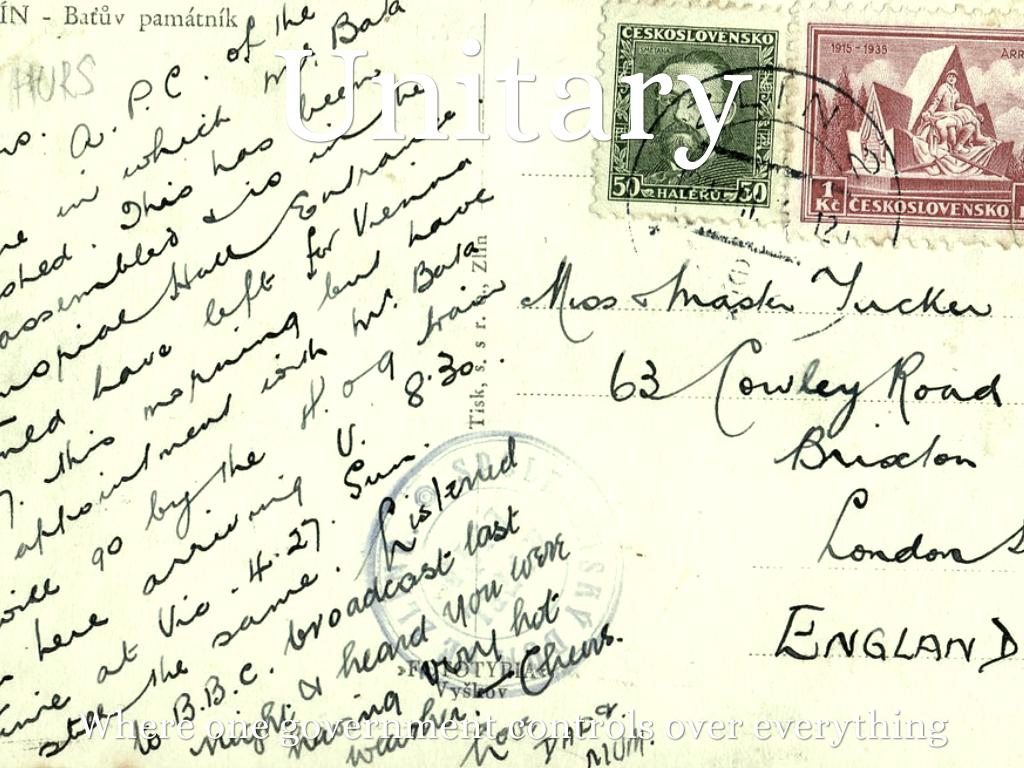 ÍN - Baťův památník
HURS
Unitary
a. P.C. of the
in which Mr. Bata
This has been
assembled & is in the
Hall Entrance.
have left for Vienna
this morning but have
appointment with Mr. Bata
will go by the 4.09 train
here arriving V. 8.30.
at Vic. 4.27. Sun.
still the same. Listened
to B.B.C. broadcast last
night & heard you were
having very hot
weather. Cheers.
DAD &
MUM.
ČESKOSLOVENSKO
SMETANA
50 HALÉŘŮ 50
1915-1935
ARR
1
Kč ČESKOSLOVENSKO
ZLÍN
Tisk, s. s r. o., Zlín
Miss & Master Tucker
63 Cowley Road
Brixton
London S
ENGLAND
»FOTOTYPIA«
Vyškov
Where one government controls over everything